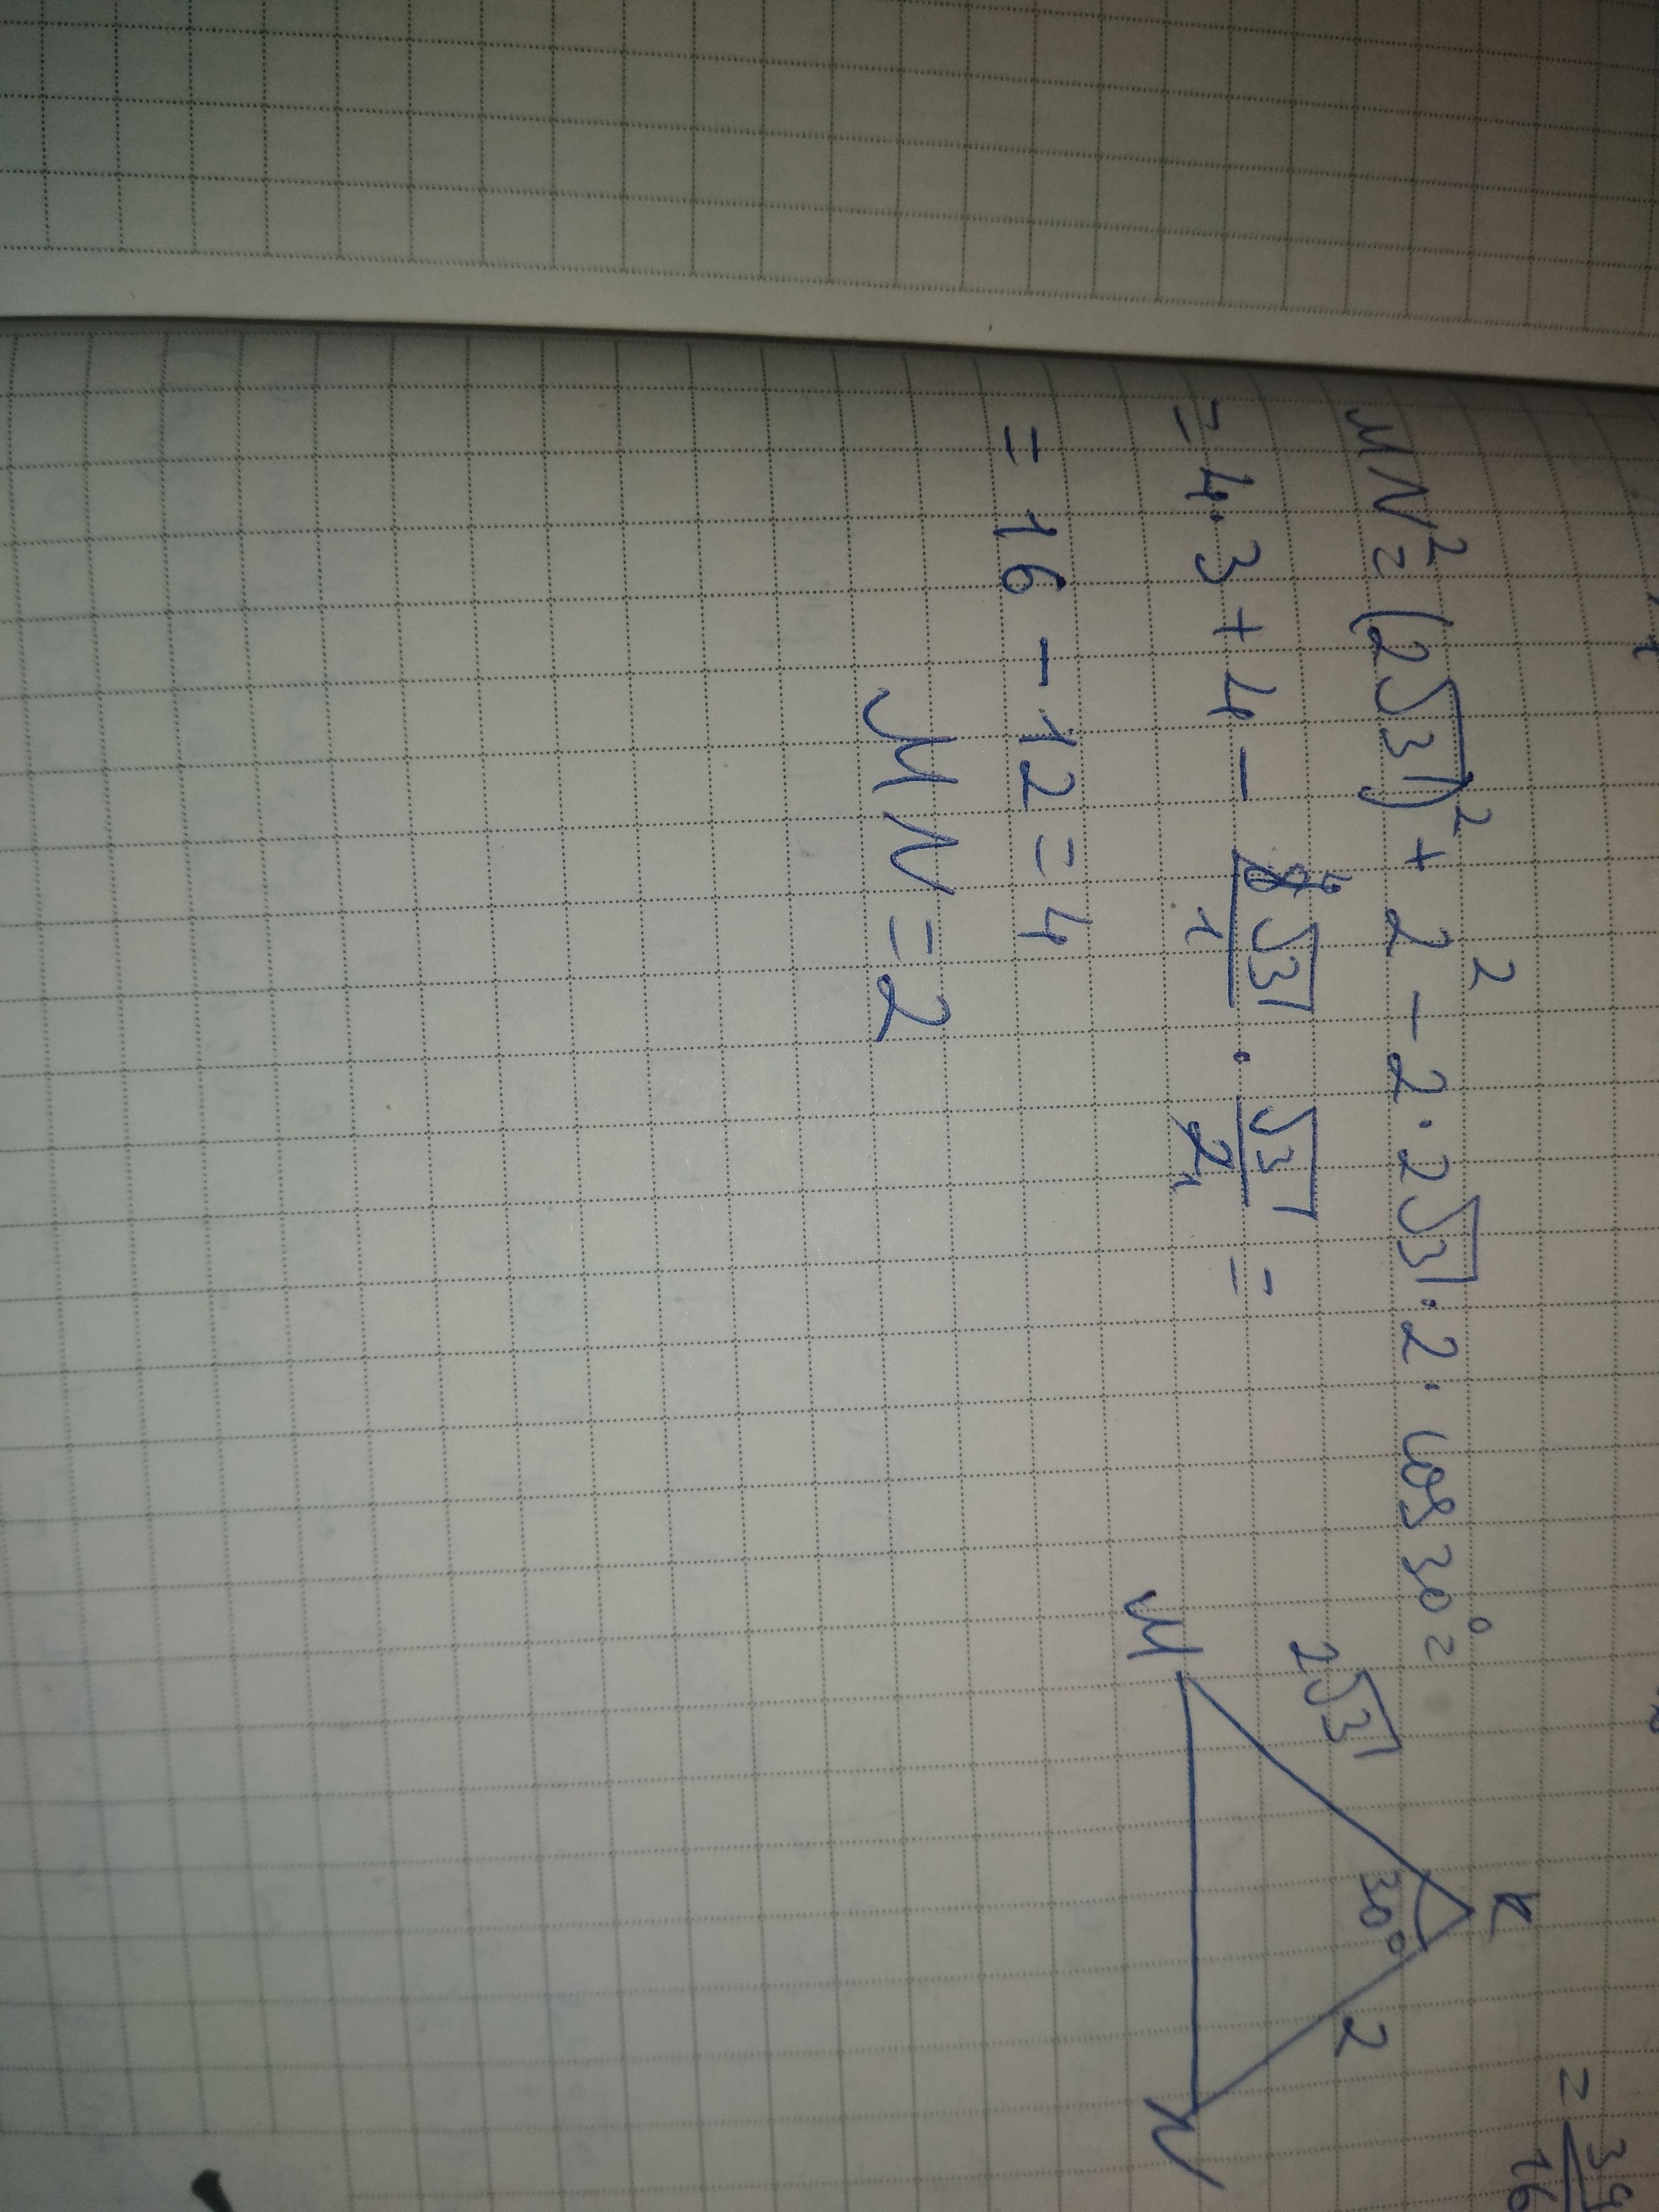 MN² = (2√3)² + 2² - 2 · 2√3 · 2 · cos 30° =
= 4 · 3 + 4 - 8⁴√3/1 · √3/2₁ =
= 16 - 12 = 4
MN = 2
K
2√3
30°
2
M
N